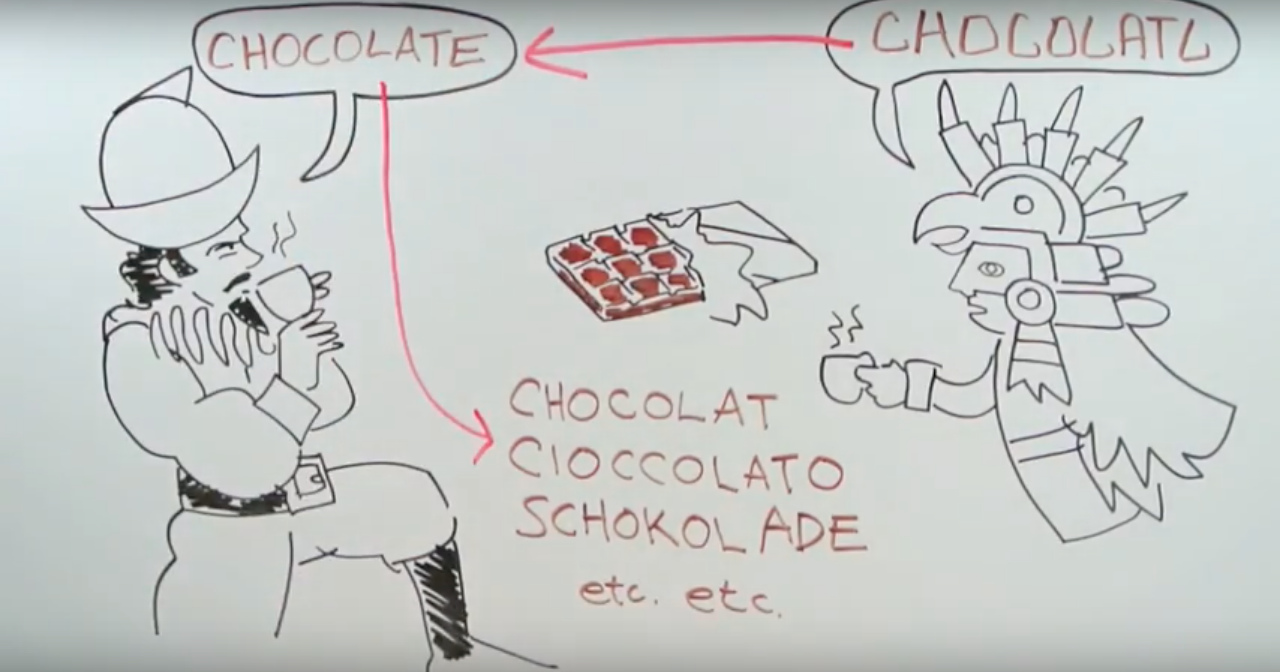 CHOCOLATE
CHOCOLATL
CHOCOLAT
CIOCCOLATO
SCHOKOLADE
etc. etc.